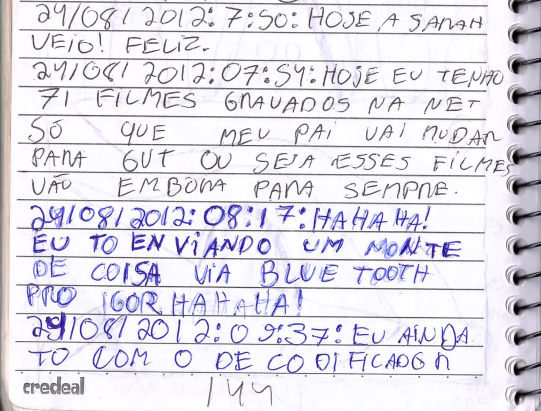 24/08/2012: 7:50: HOJE A SARAH
VEIO! FELIZ.
24/08/2012: 07:54: HOJE EU TENHO
71 FILMES GRAVADOS NA NET
SÓ QUE MEU PAI VAI MUDAR
PARA GVT OU SEJA ESSES FILMES
VÃO EMBORA PARA SEMPRE.
24/08/2012: 08:17: HAHAHA!
EU TO ENVIANDO UM MONTE
DE COISA VIA BLUETOOTH
PRO IGOR HAHAHA!
24/08/2012: 09:37: EU AINDA
TO COM O DECODIFICADOR
credeal
144